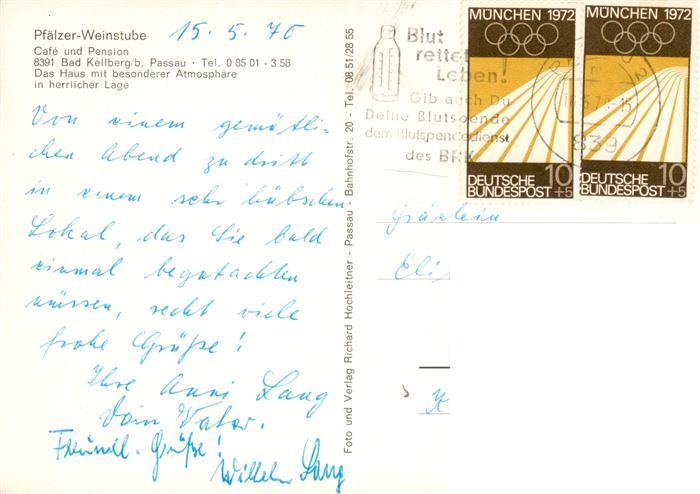 Pfälzer-Weinstube
Café und Pension
8391 Bad Kellberg/b. Passau · Tel. 0 85 01 - 3 58
Das Haus mit besonderer Atmosphäre
in herrlicher Lage
15. 5. 70
Von einem gemütli-
chen Abend zu dritt
in einem sehr hübschen
Lokal, das Sie bald
einmal begutachten
müssen, recht viele
frohe Grüße!
Ihre Anni Lang
Dein Vater.
Freundl. Grüße!
Wilhelm Lang
Foto und Verlag Richard Hochleitner - Passau - Bahnhofstr. 20 - Tel. 08 51/28 55
Blut
rettet
Leben!
Gib auch Du
Deine Blutspende
dem Blutspendedienst
des BRK
839
MÜNCHEN 1972
DEUTSCHE
BUNDESPOST
10
+5
MÜNCHEN 1972
DEUTSCHE
BUNDESPOST
10
+5
Fräulein
Eli
K